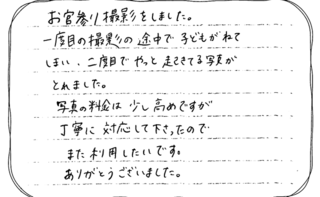 お宮参り撮影をしました。
一度目の撮影の途中で子どもがねて
しまい、二度目でやっと起きてる写真が
とれました。
写真の料金は少し高めですが
丁寧に対応して下さったので
また利用したいです。
ありがとうございました。